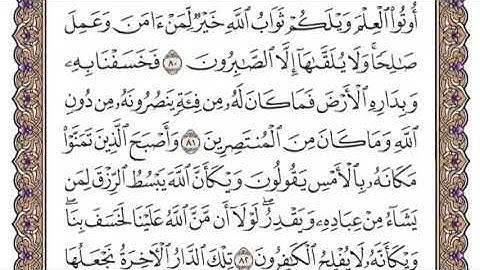 أُوتُوا۟ ٱلْعِلْمَ وَيْلَكُمْ ثَوَابُ ٱللَّهِ خَيْرٌ لِّمَنْ ءَامَنَ وَعَمِلَ
صَـٰلِحًا وَلَا يُلَقَّىٰهَآ إِلَّا ٱلصَّـٰبِرُونَ ٨٠ فَخَسَفْنَا بِهِۦ
وَبِدَارِهِ ٱلْأَرْضَ فَمَا كَانَ لَهُۥ مِن فِئَةٍ يَنصُرُونَهُۥ مِن دُونِ
ٱللَّهِ وَمَا كَانَ مِنَ ٱلْمُنتَصِرِينَ ٨١ وَأَصْبَحَ ٱلَّذِينَ تَمَنَّوْا۟
مَكَانَهُۥ بِٱلْأَمْسِ يَقُولُونَ وَيْكَأَنَّ ٱللَّهَ يَبْسُطُ ٱلرِّزْقَ لِمَن
يَشَآءُ مِنْ عِبَادِهِۦ وَيَقْدِرُ ۖ لَوْلَآ أَن مَّنَّ ٱللَّهُ عَلَيْنَا لَخَسَفَ بِنَا ۖ
وَيْكَأَنَّهُۥ لَا يُفْلِحُ ٱلْكَـٰفِرُونَ ٨٢ تِلْكَ ٱلدَّارُ ٱلْـَٔاخِرَةُ نَجْعَلُهَا